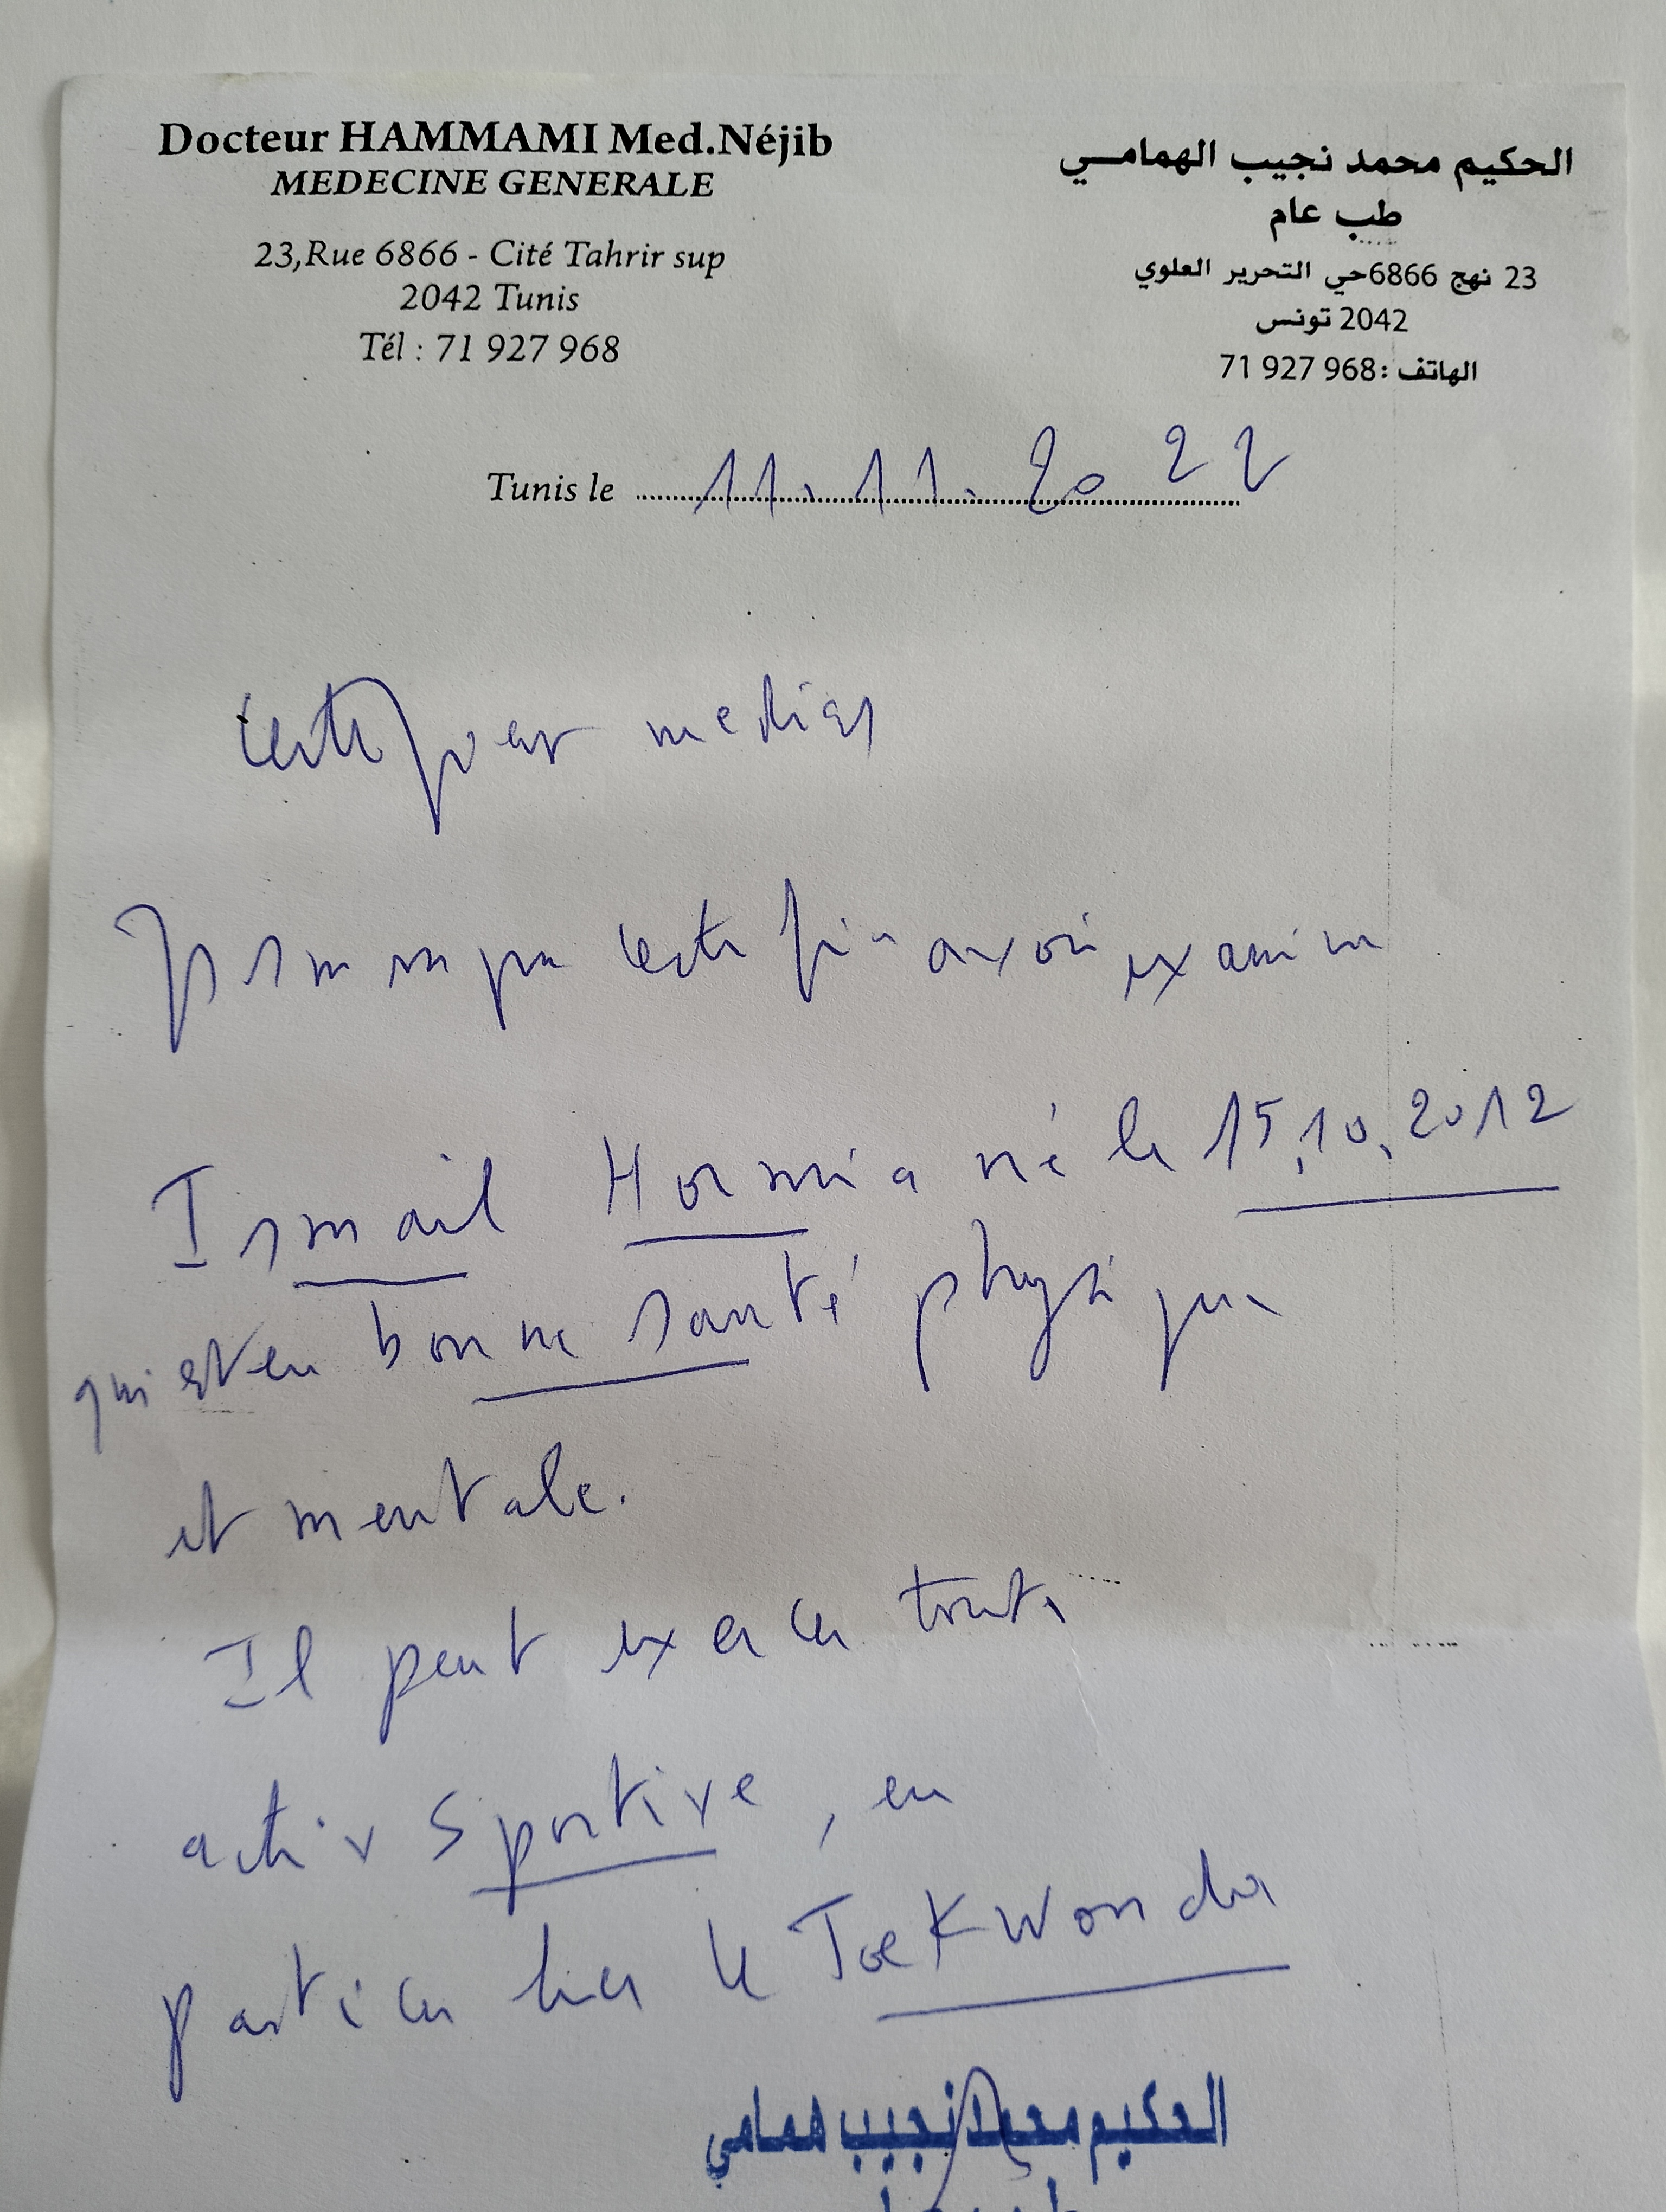 Docteur HAMMAMI Med.Néjib
MEDECINE GENERALE
23,Rue 6866 - Cité Tahrir sup
2042 Tunis
Tél : 71 927 968
الحكيم محمد نجيب الهمامي
طب عام
23 نهج 6866حي التحرير العلوي
2042 تونس
الهاتف :71 927 968
Tunis le 11.11.2022
Certificat medical
certifie avoir examine
Ismail né le 15.10.2012
qui est en bonne santé physique
et mentale.
Il peut exercer toute
activ sportive, en
particulier le TaeKwondo
الحكيم محمد نجيب همامي